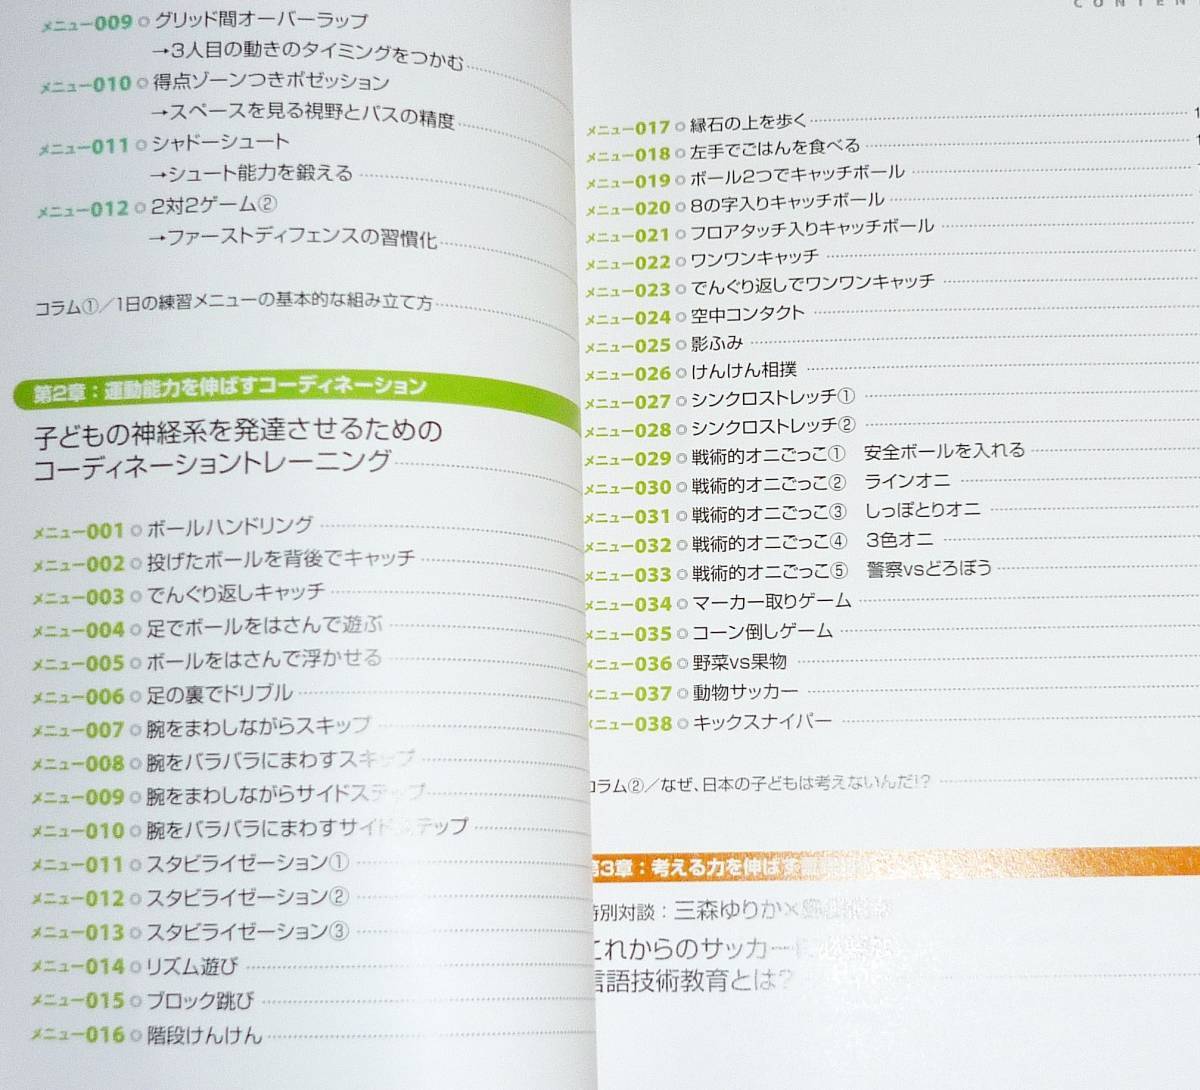 メニュー009◎グリッド間オーバーラップ
→3人目の動きのタイミングをつかむ
メニュー010◎得点ゾーンつきポゼッション
→スペースを見る視野とパスの精度
メニュー011◎シャドーシュート
→シュート能力を鍛える
メニュー012◎2対2ゲーム②
→ファーストディフェンスの習慣化
コラム①／1日の練習メニューの基本的な組み立て方
第2章：運動能力を伸ばすコーディネーション
子どもの神経系を発達させるための
コーディネーショントレーニング
メニュー001◎ボールハンドリング
メニュー002◎投げたボールを背後でキャッチ
メニュー003◎でんぐり返しキャッチ
メニュー004◎足でボールをはさんで遊ぶ
メニュー005◎ボールをはさんで浮かせる
メニュー006◎足の裏でドリブル
メニュー007◎腕をまわしながらスキップ
メニュー008◎腕をバラバラにまわすスキップ
メニュー009◎腕をまわしながらサイドステップ
メニュー010◎腕をバラバラにまわすサイドステップ
メニュー011◎スタビライゼーション①
メニュー012◎スタビライゼーション②
メニュー013◎スタビライゼーション③
メニュー014◎リズム遊び
メニュー015◎ブロック跳び
メニュー016◎階段けんけん
CONTEN
メニュー017◎縁石の上を歩く
メニュー018◎左手でごはんを食べる
メニュー019◎ボール2つでキャッチボール
メニュー020◎8の字入りキャッチボール
メニュー021◎フロアタッチ入りキャッチボール
メニュー022◎ワンワンキャッチ
メニュー023◎でんぐり返しでワンワンキャッチ
メニュー024◎空中コンタクト
メニュー025◎影ふみ
メニュー026◎けんけん相撲
メニュー027◎シンクロストレッチ①
メニュー028◎シンクロストレッチ②
メニュー029◎戦術的オニごっこ①　安全ボールを入れる
メニュー030◎戦術的オニごっこ②　ラインオニ
メニュー031◎戦術的オニごっこ③　しっぽとりオニ
メニュー032◎戦術的オニごっこ④　3色オニ
メニュー033◎戦術的オニごっこ⑤　警察vsどろぼう
メニュー034◎マーカー取りゲーム
メニュー035◎コーン倒しゲーム
メニュー036◎野菜vs果物
メニュー037◎動物サッカー
メニュー038◎キックスナイパー
コラム②／なぜ、日本の子どもは考えないんだ!?
第3章：考える力を伸ばす
特別対談：三森ゆりか×
これからのサッカー
言語技術教育とは?